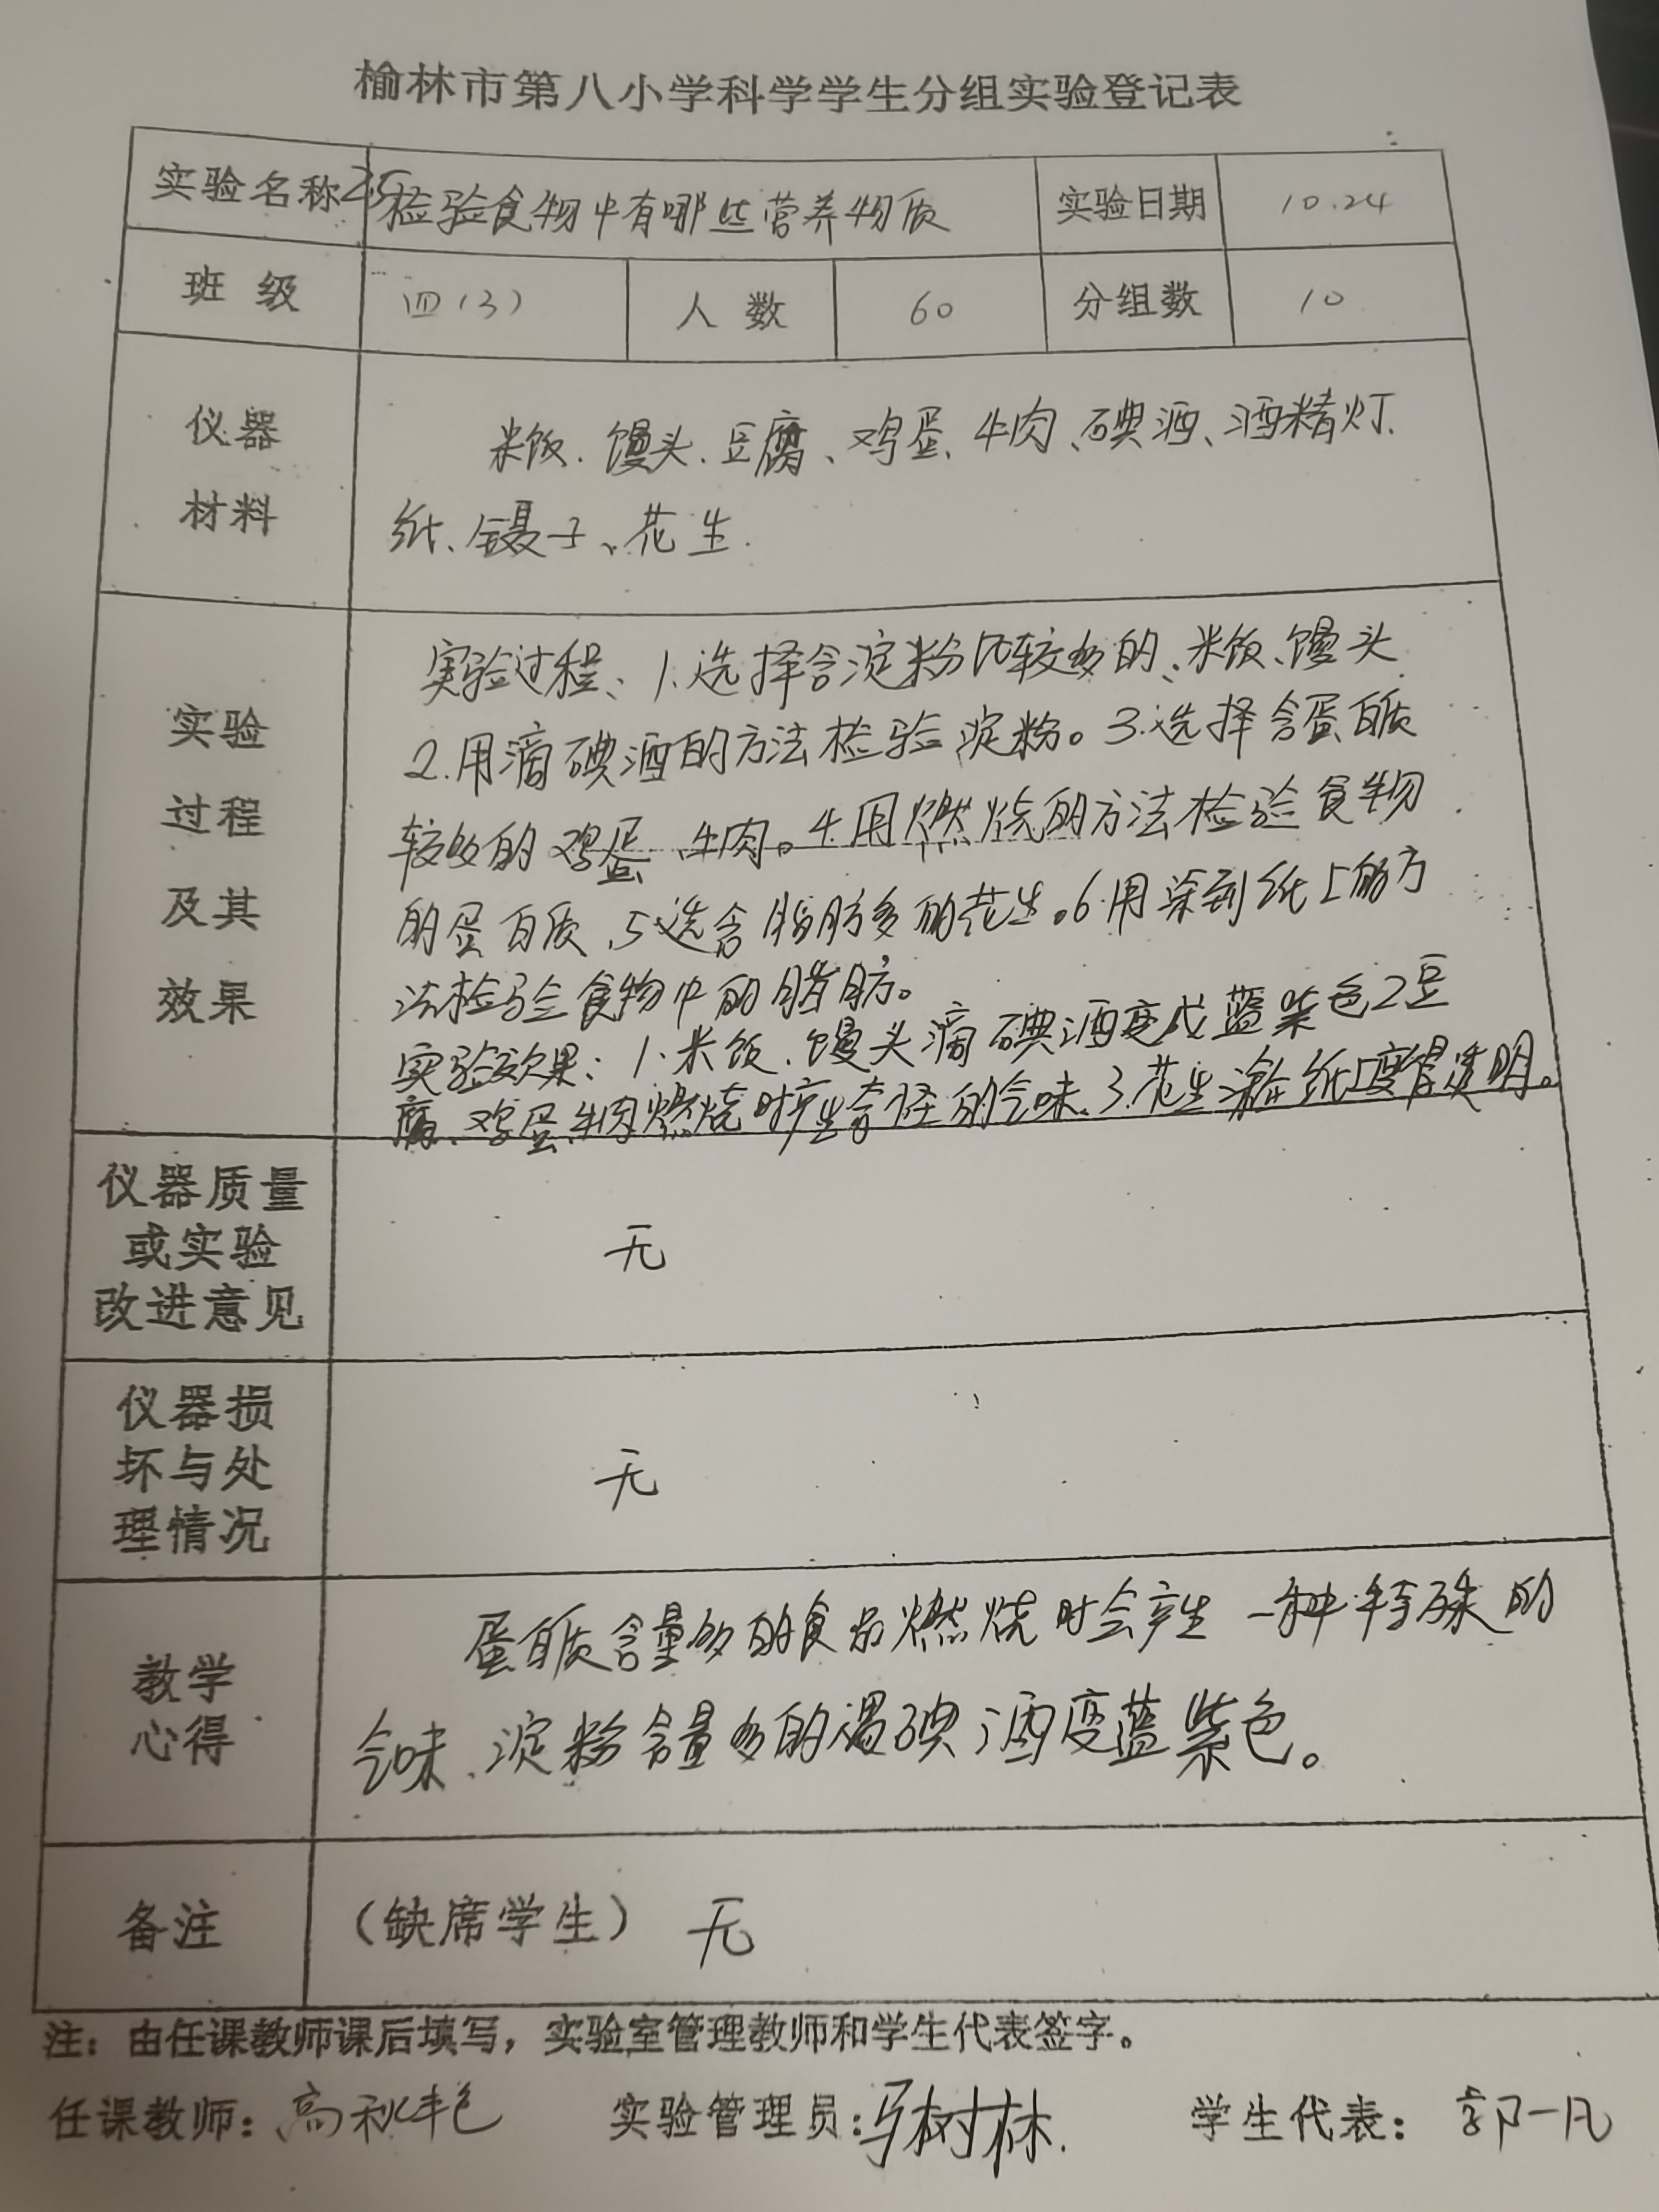 榆林市第八小学科学学生分组实验登记表
实验名称 25 检验食物中有哪些营养物质 实验日期 10.24
班 级 四(3) 人 数 60 分组数 10
仪器
材料
米饭、馒头、豆腐、鸡蛋、牛肉、碘酒、酒精灯、
纸、镊子、花生.
实验
过程
及其
效果
实验过程、1.选择含淀粉比较多的、米饭、馒头
2.用滴碘酒的方法检验淀粉。3.选择含蛋白质
较多的鸡蛋、牛肉。4.用燃烧的方法检验食物
的蛋白质、5.选含脂肪多的花生。6.用涂到纸上的方
法检验食物中的脂肪。
实验效果：1.米饭、馒头滴碘酒变成蓝紫色2豆
腐、鸡蛋、牛肉燃烧时产生奇怪的气味、3.花生 纸上变得透明。
仪器质量
或实验
改进意见
无
仪器损
坏与处
理情况
无
教学
心得
蛋白质含量多的食品燃烧时会产生一种特殊的
气味、淀粉含量多的遇碘酒变蓝紫色。
备注 （缺席学生） 无
注：由任课教师课后填写，实验室管理教师和学生代表签字。
任课教师：高秋艳 实验管理员：马树林. 学生代表：郭一凡